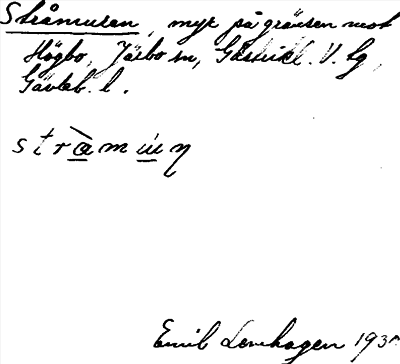 Stråmuren, myr på gränsen mot
Högbo, Järbo sn, Gästrikl. V. tg,
Gävleb. l.
stràmúŋ
Emil Lenhagen 193